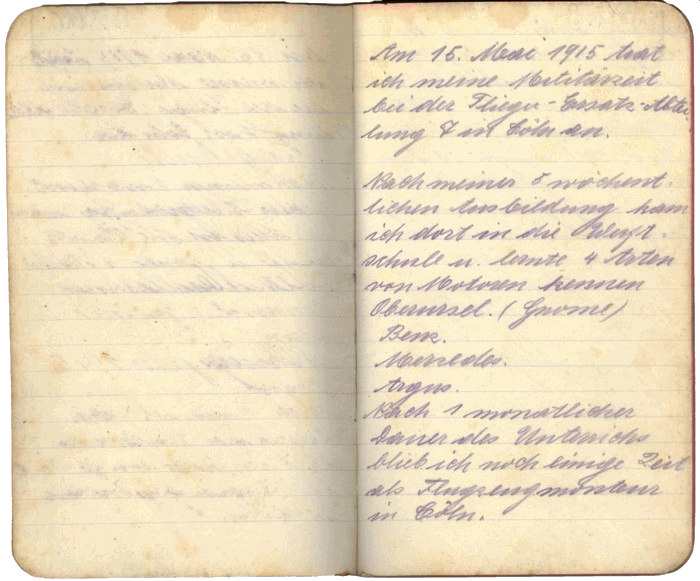 Am 15. Mai 1915 trat
ich meine Militärzeit
bei der Flieger-Ersatz-Abtei
lung 7 in Cöln an.
Nach meiner 5 wöchent-
lichen Ausbildung kam
ich dort in die Werft-
schule u. lernte 4 Arten
von Motoren kennen
Oberursel. (Gnome)
Benz.
Mercedes.
Argus.
Nach 1 monatlicher
Dauer des Unterrichs
blieb ich noch einige Zeit
als Flugzeugmonteur
in Cöln.